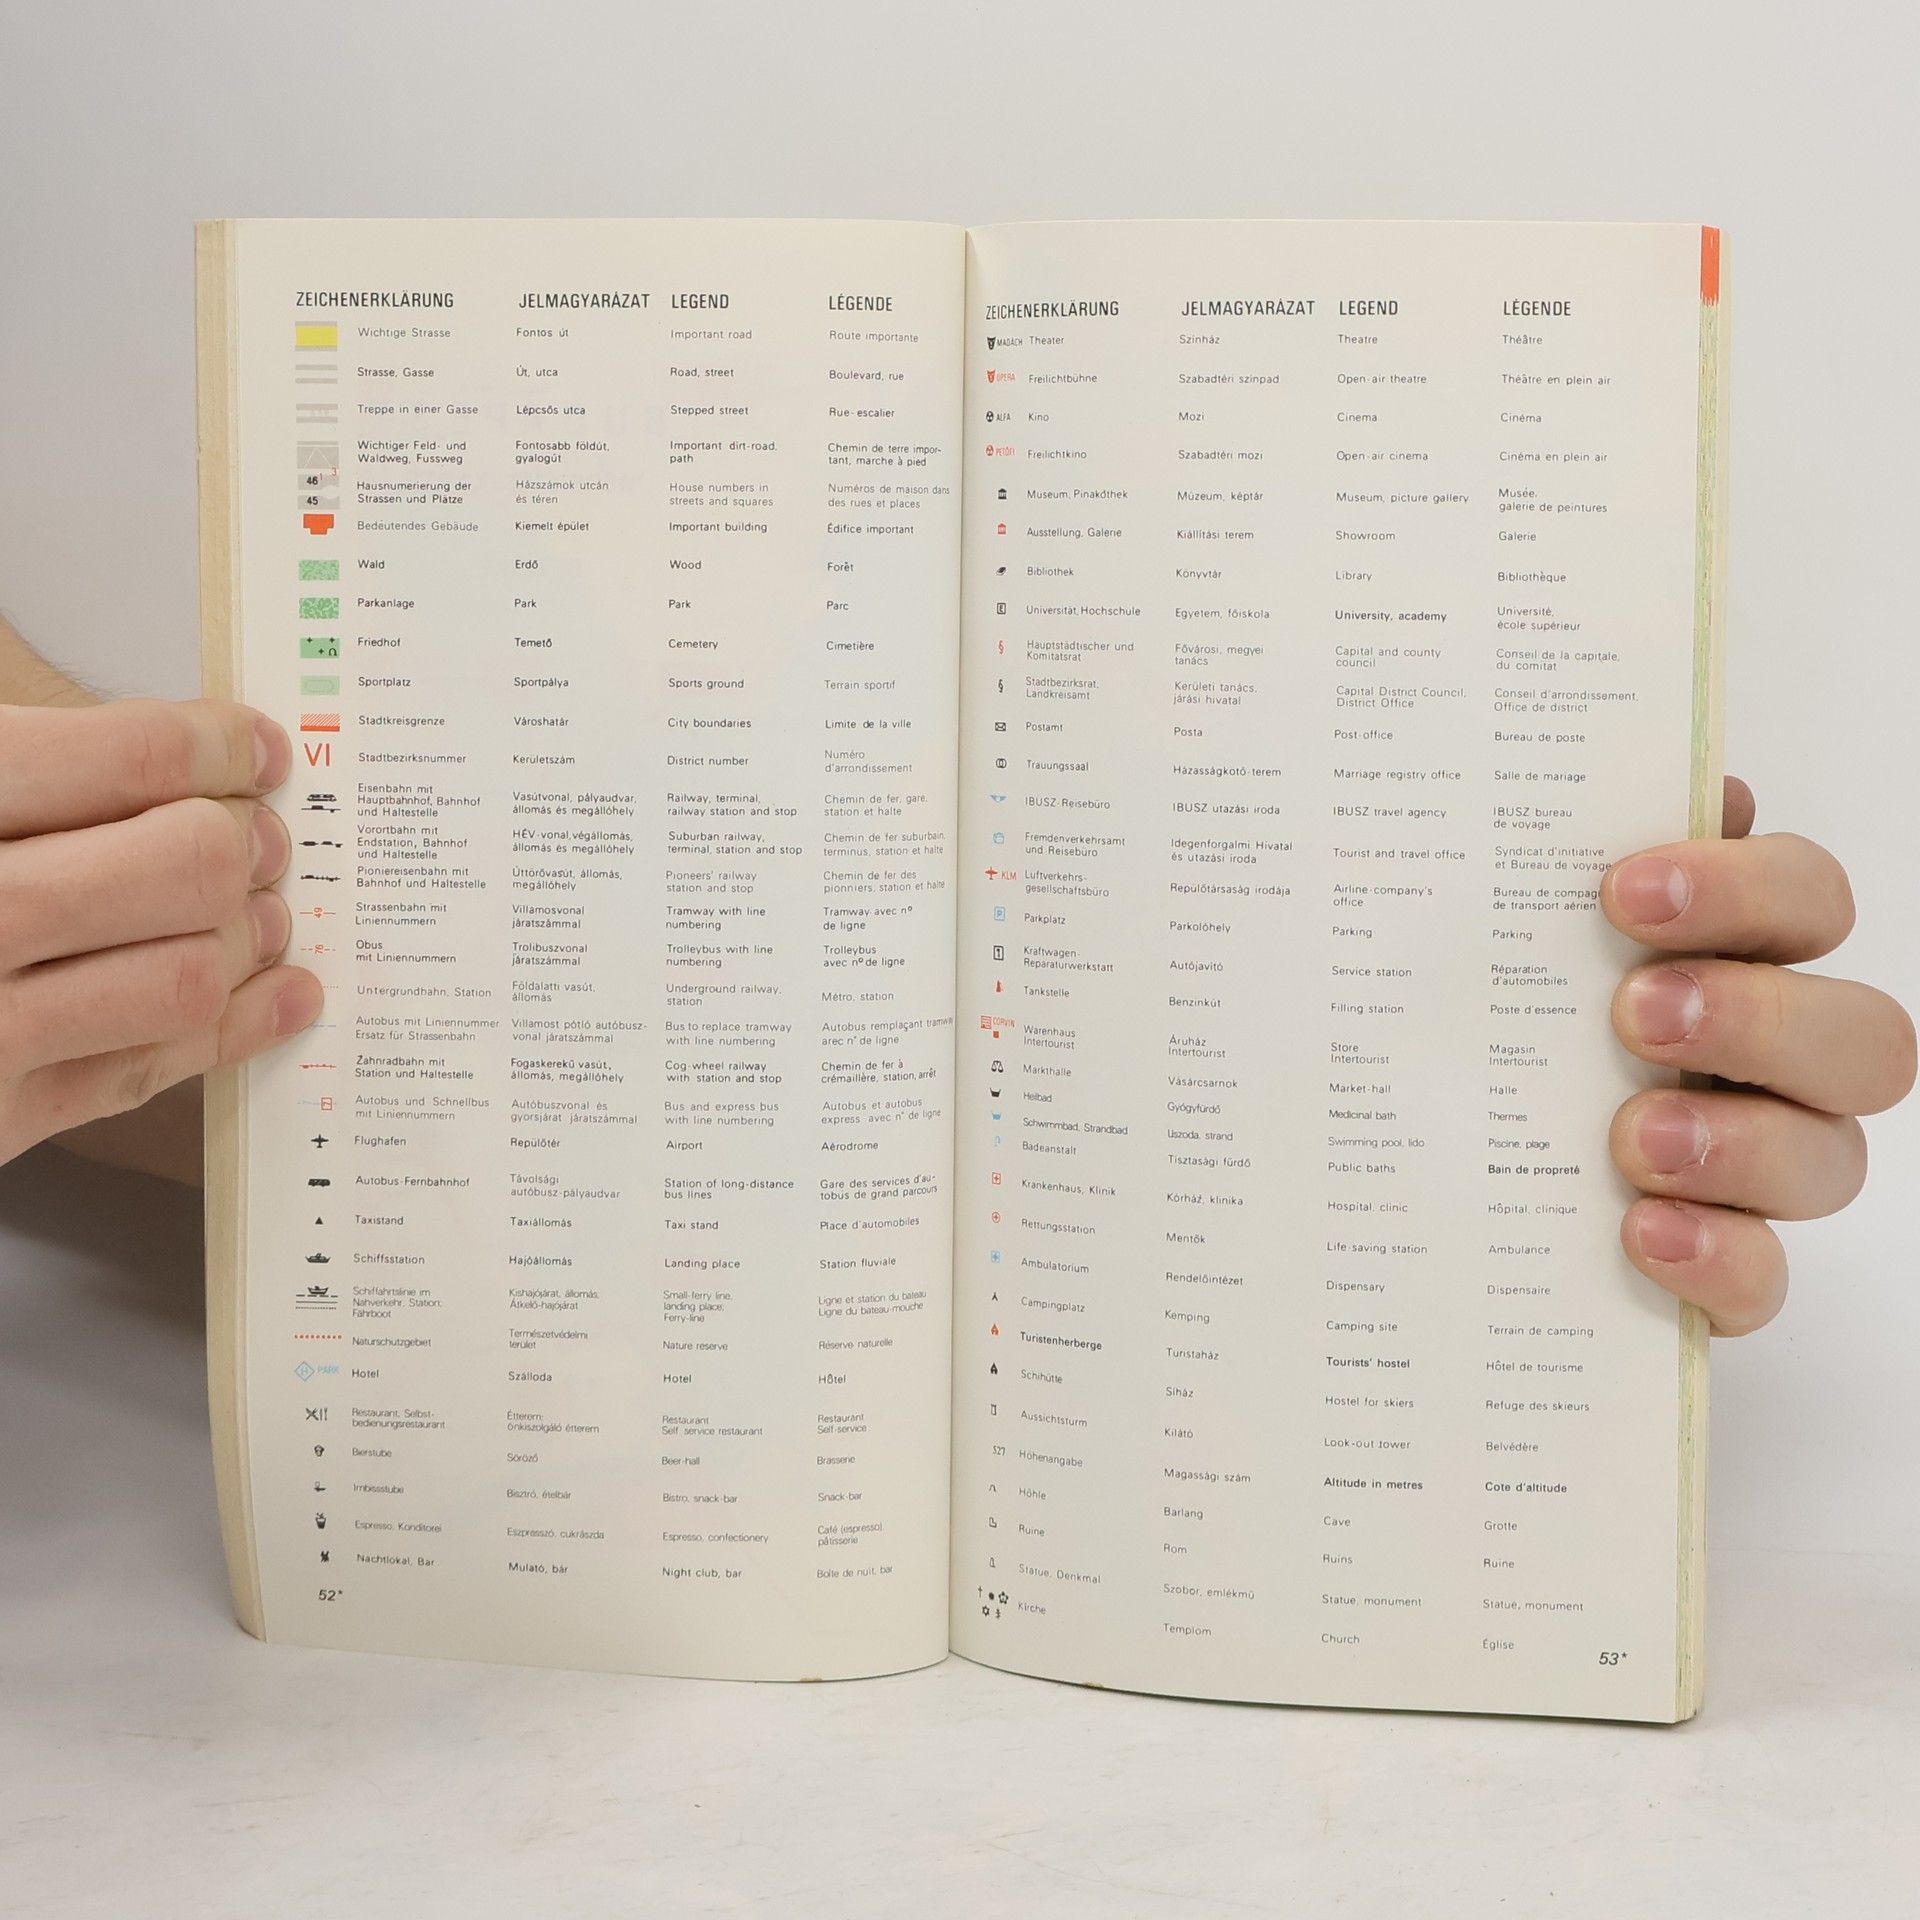 ZEICHENERKLÄRUNG JELMAGYARÁZAT LEGEND LÉGENDE
Wichtige Strasse Fontos út Important road Route importante
Strasse, Gasse Út, utca Road, street Boulevard, rue
Treppe in einer Gasse Lépcsős utca Stepped street Rue-escalier
Wichtiger Feld- und Fontosabb földút, Important dirt-road, Chemin de terre impor-
Waldweg, Fussweg gyalogút path tant, marche à pied
46 3 Hausnumerierung der Házszámok utcán House numbers in Numéros de maison dans
45 Strassen und Plätze és téren streets and squares des rues et places
Bedeutendes Gebäude Kiemelt épület Important building Édifice important
Wald Erdő Wood Forêt
Parkanlage Park Park Parc
Friedhof Temető Cemetery Cimetière
Sportplatz Sportpálya Sports ground Terrain sportif
Stadtkreisgrenze Városhatár City boundaries Limite de la ville
VI Stadtbezirksnummer Kerületszám District number Numéro
d'arrondissement
Eisenbahn mit
Hauptbahnhof, Bahnhof Vasútvonal, pályaudvar, Railway, terminal, Chemin de fer, gare,
und Haltestelle állomás és megállóhely railway station and stop station et halte
Vorortbahn mit HÉV-vonal, végállomás, Suburban railway, Chemin de fer suburbain,
Endstation, Bahnhof állomás és megállóhely terminal, station and stop terminus, station et halte
und Haltestelle
Pioniereisenbahn mit Úttörővasút, állomás, Pioneers' railway Chemin de fer des
Bahnhof und Haltestelle megállóhely station and stop pionniers, station et halte
49 Strassenbahn mit Villamosvonal Tramway with line Tramway avec nº
Liniennummern járatszámmal numbering de ligne
76 Obus Trolibuszvonal Trolleybus with line Trolleybus
mit Liniennummern járatszámmal numbering avec nº de ligne
Untergrundhahn, Station Földalatti vasút, Underground railway, Métro, station
állomás station
Autobus mit Liniennummer Villamost pótló autóbusz- Bus to replace tramway Autobus remplaçant tramway
Ersatz für Strassenbahn vonal járatszámmal with line numbering arec n° de ligne
Zahnradbahn mit Fogaskerekű vasút, Cog-wheel railway Chemin de fer à
Station und Haltestelle állomás, megállóhely with station and stop crémaillère, station, arrêt
7 Autobus und Schnellbus Autóbuszvonal és Bus and express bus Autobus et autobus
mit Liniennummern gyorsjárat járatszámmal with line numbering express avec n° de ligne
Flughafen Repülőtér Airport Aérodrome
Autobus-Fernbahnhof Távolsági Station of long-distance Gare des services d'au-
autóbusz-pályaudvar bus lines tobus de grand parcours
Taxistand Taxiállomás Taxi stand Place d'automobiles
Schiffsstation Hajóállomás Landing place Station fluviale
Schiffahrtslinie im Kishajójárat, állomás; Small-ferry line, Ligne et station du bateau
Nahverkehr, Station; Átkelő-hajójárat landing place; Ligne du bateau-mouche
Fährboot Ferry-line
Naturschutzgebiet Természetvédelmi Nature reserve Réserve naturelle
terület
H PARK Hotel Szálloda Hotel Hôtel
Restaurant, Selbst- Étterem; Restaurant Restaurant
bedienungsrestaurant önkiszolgáló étterem Self service restaurant Self-service
Bierstube Söröző Beer-hall Brasserie
Imbissstube Bisztró, ételbár Bistro, snack-bar Snack-bar
Espresso, Konditorei Eszpresszó, cukrászda Espresso, confectionery Café (espresso)
pâtisserie
Nachtlokal, Bar Mulató, bár Night club, bar Boîte de nuit, bar
52*
ZEICHENERKLÄRUNG JELMAGYARÁZAT LEGEND LÉGENDE
MADÁCH Theater Színház Theatre Théâtre
OPERA Freilichtbühne Szabadtéri színpad Open-air theatre Théâtre en plein air
ALFA Kino Mozi Cinema Cinéma
PETŐFI Freilichtkino Szabadtéri mozi Open-air cinema Cinéma en plein air
Museum, Pinakothek Múzeum, képtár Museum, picture gallery Musée,
galerie de peintures
Ausstellung, Galerie Kiállítási terem Showroom Galerie
Bibliothek Könyvtár Library Bibliothèque
E Universität, Hochschule Egyetem, főiskola University, academy Université,
école supérieur
§ Hauptstädtischer und Fővárosi, megyei Capital and county Conseil de la capitale,
Komitatsrat tanács council du comitat
§ Stadtbezirksrat, Kerületi tanács, Capital District Council, Conseil d'arrondissement,
Landkreisamt járási hivatal District Office Office de district
Postamt Posta Post-office Bureau de poste
Trauungssaal Házasságkötő-terem Marriage registry office Salle de mariage
IBUSZ-Reisebüro IBUSZ utazási iroda IBUSZ travel agency IBUSZ bureau
de voyage
Fremdenverkehrsamt Idegenforgalmi Hivatal Tourist and travel office Syndicat d'initiative
und Reisebüro és utazási iroda et Bureau de voyage
KLM Luftverkehrs- Repülőtársaság irodája Airline-company's Bureau de compag
gesellschaftsbüro office de transport aérien
P Parkplatz Parkolóhely Parking Parking
Kraftwagen- Autójavító Service station Réparation
Reparaturwerkstatt d'automobiles
Tankstelle Benzinkút Filling station Poste d'essence
CORVIN Warenhaus Áruház Store Magasin
Intertourist Intertourist Intertourist Intertourist
Markthalle Vásárcsarnok Market-hall Halle
Heilbad Gyógyfürdő Medicinal bath Thermes
Schwimmbad, Strandbad Uszoda, strand Swimming pool, lido Piscine, plage
Badeanstalt Tisztasági fürdő Public baths Bain de propreté
Krankenhaus, Klinik Kórház, klinika Hospital, clinic Hôpital, clinique
Rettungsstation Mentők Life-saving station Ambulance
Ambulatorium Rendelőintézet Dispensary Dispensaire
Campingplatz Kemping Camping site Terrain de camping
Turistenherberge Turistaház Tourists' hostel Hôtel de tourisme
Schihütte Síház Hostel for skiers Refuge des skieurs
Aussichtsturm Kilátó Look-out tower Belvédère
527 Höhenangabe Magassági szám Altitude in metres Cote d'altitude
Höhle Barlang Cave Grotte
Ruine Rom Ruins Ruine
Statue, Denkmal Szobor, emlékmű Statue, monument Statue, monument
Kirche Templom Church Église
53*